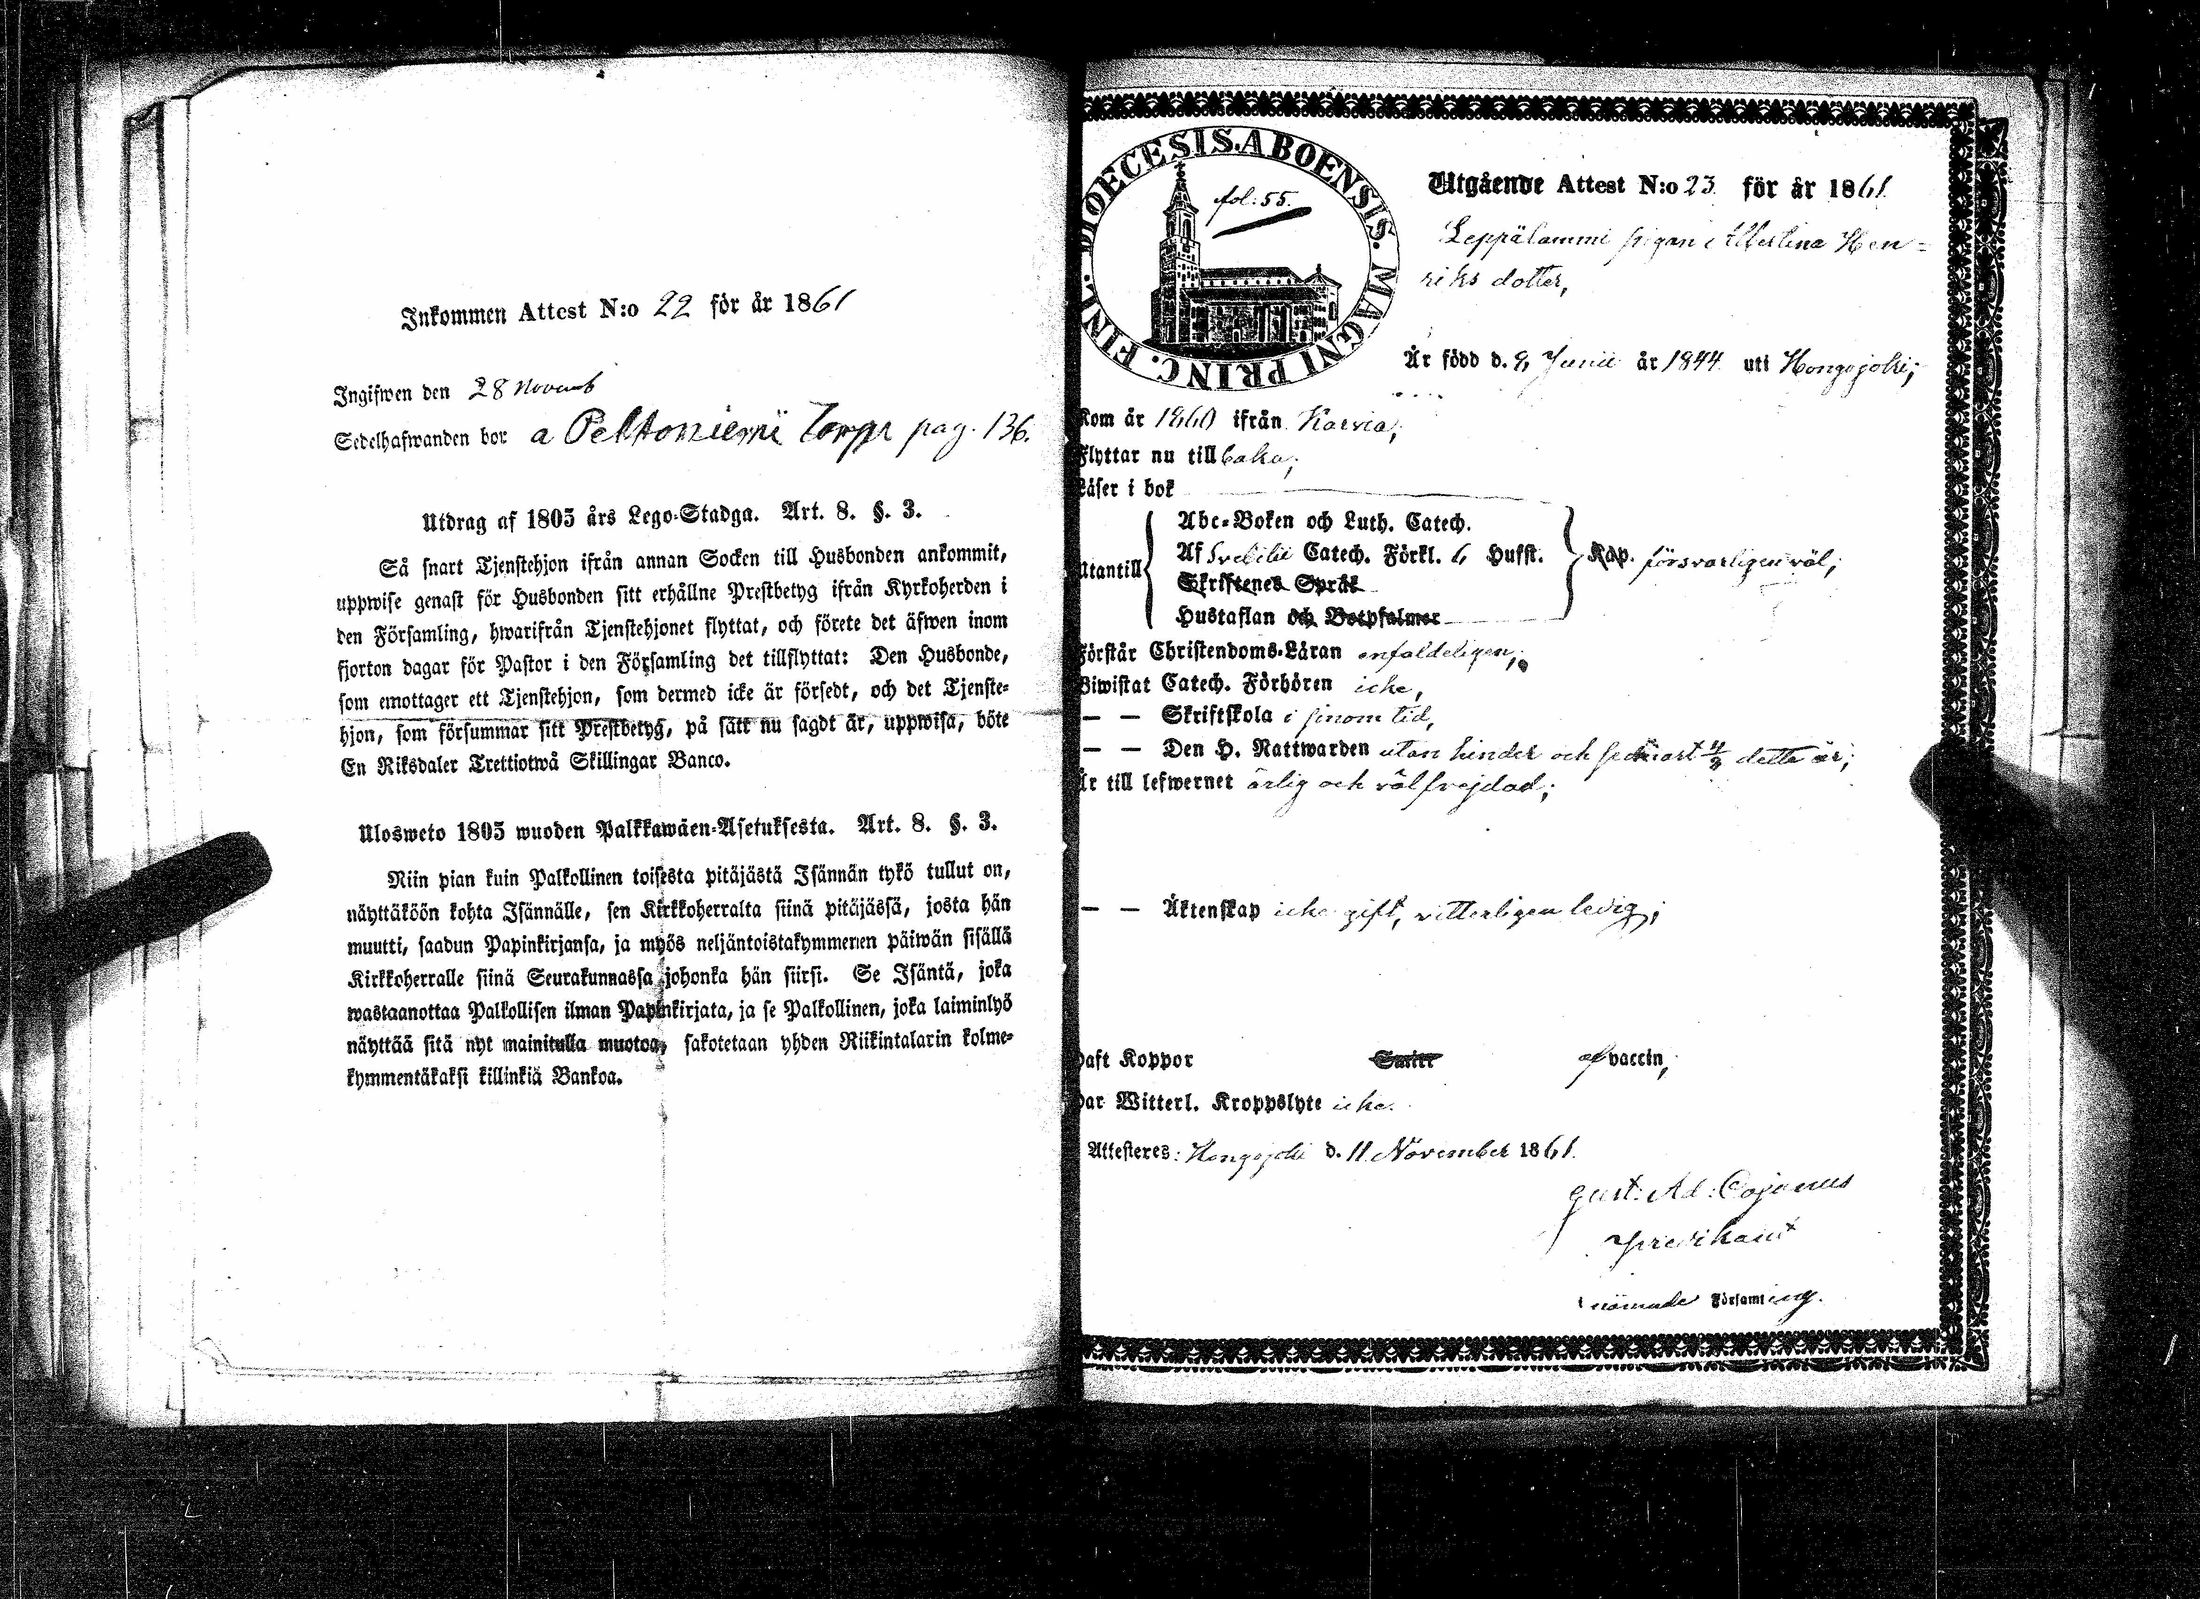 Inkommen Attest N:o 22 för år 1861
Ingifwen den 28 Novemb
Sedelhafwanden bor a Peltoniemi Torpr pag. 136.
Utdrag af 1805 års Lego-Stadga. Art. 8. §. 3.
Så snart Tjenstehjon ifrån annan Socken till Husbonden ankommit,
uppwise genast för Husbonden sitt erhållne Prestbetyg ifrån Kyrkoherden i
den Församling, hwarifrån Tjenstehjonet flyttat, och förete det äfwen inom
fjorton dagar för Pastor i den Församling det tillflyttat: Den Husbonde,
som emottager ett Tjenstehjon, som dermed icke är försedt, och det Tjenste-
hjon, som försummar sitt Prestbetyg, på sätt nu sagdt är, uppwisa, böte
En Riksdaler Trettiotwå Skillingar Banco.
Ulosweto 1805 wuoden Palkkawäen-Asetuksesta. Art. 8. §. 3.
Niin pian kuin Palkollinen toisesta pitäjästä Isännän tykö tullut on,
näyttäköön kohta Isännälle, sen Kirkkoherralta siinä pitäjässä, josta hän
muutti, saadun Papinkirjansa, ja myös neljäntoistakymmenen päiwän sisällä
Kirkkoherralle siinä Seurakunnassa johonka hän siirsi. Se Isäntä, joka
wastaanottaa Palkollisen ilman Papinkirjata, ja se Palkollinen, joka laiminlyö
näyttää sitä nyt mainitulla muotoa, sakotetaan yhden Riikintalarin kolme-
kymmentäkaksi killinkiä Bankoa.
DIOECESIS. ABOENSIS. MAGNI PRINC. FINL.
fol. 55.
Utgående Attest N:o 23 för år 1861
Leppälammi pigan Albertina Hen=
riks dotter,
Är född d. 9 Junii år 1844 uti Hongojoki;
Kom år 1860 ifrån Karvia;
Flyttar nu till baka;
Läser i bok
Utantill
Abc-Boken och Luth. Catech.
Af Svebilii Catech. Förkl. 6 Hufst.
Skriftenes Språk
Hustaflan och Botpsalmer
Kap. försvarligen väl;
Förstår Christendoms-Läran enfaldeligen;
Biwistat Catech. Förhören icke,
— — Skriftskola i sinom tid,
— — Den H. Nattwarden utan hinder och senast detta år;
Är till lefwernet ärlig och välfrejdad;
— — Äktenskap icke gift, vitterligen ledig;
Haft Koppor Smitt af vaccin;
Har Witterl. Kroppslyte icke.
Attesteres: Hongojoki d. 11 November 1861.
Gust. Ad. Cajanus
Predikant
i nämnde Församling.